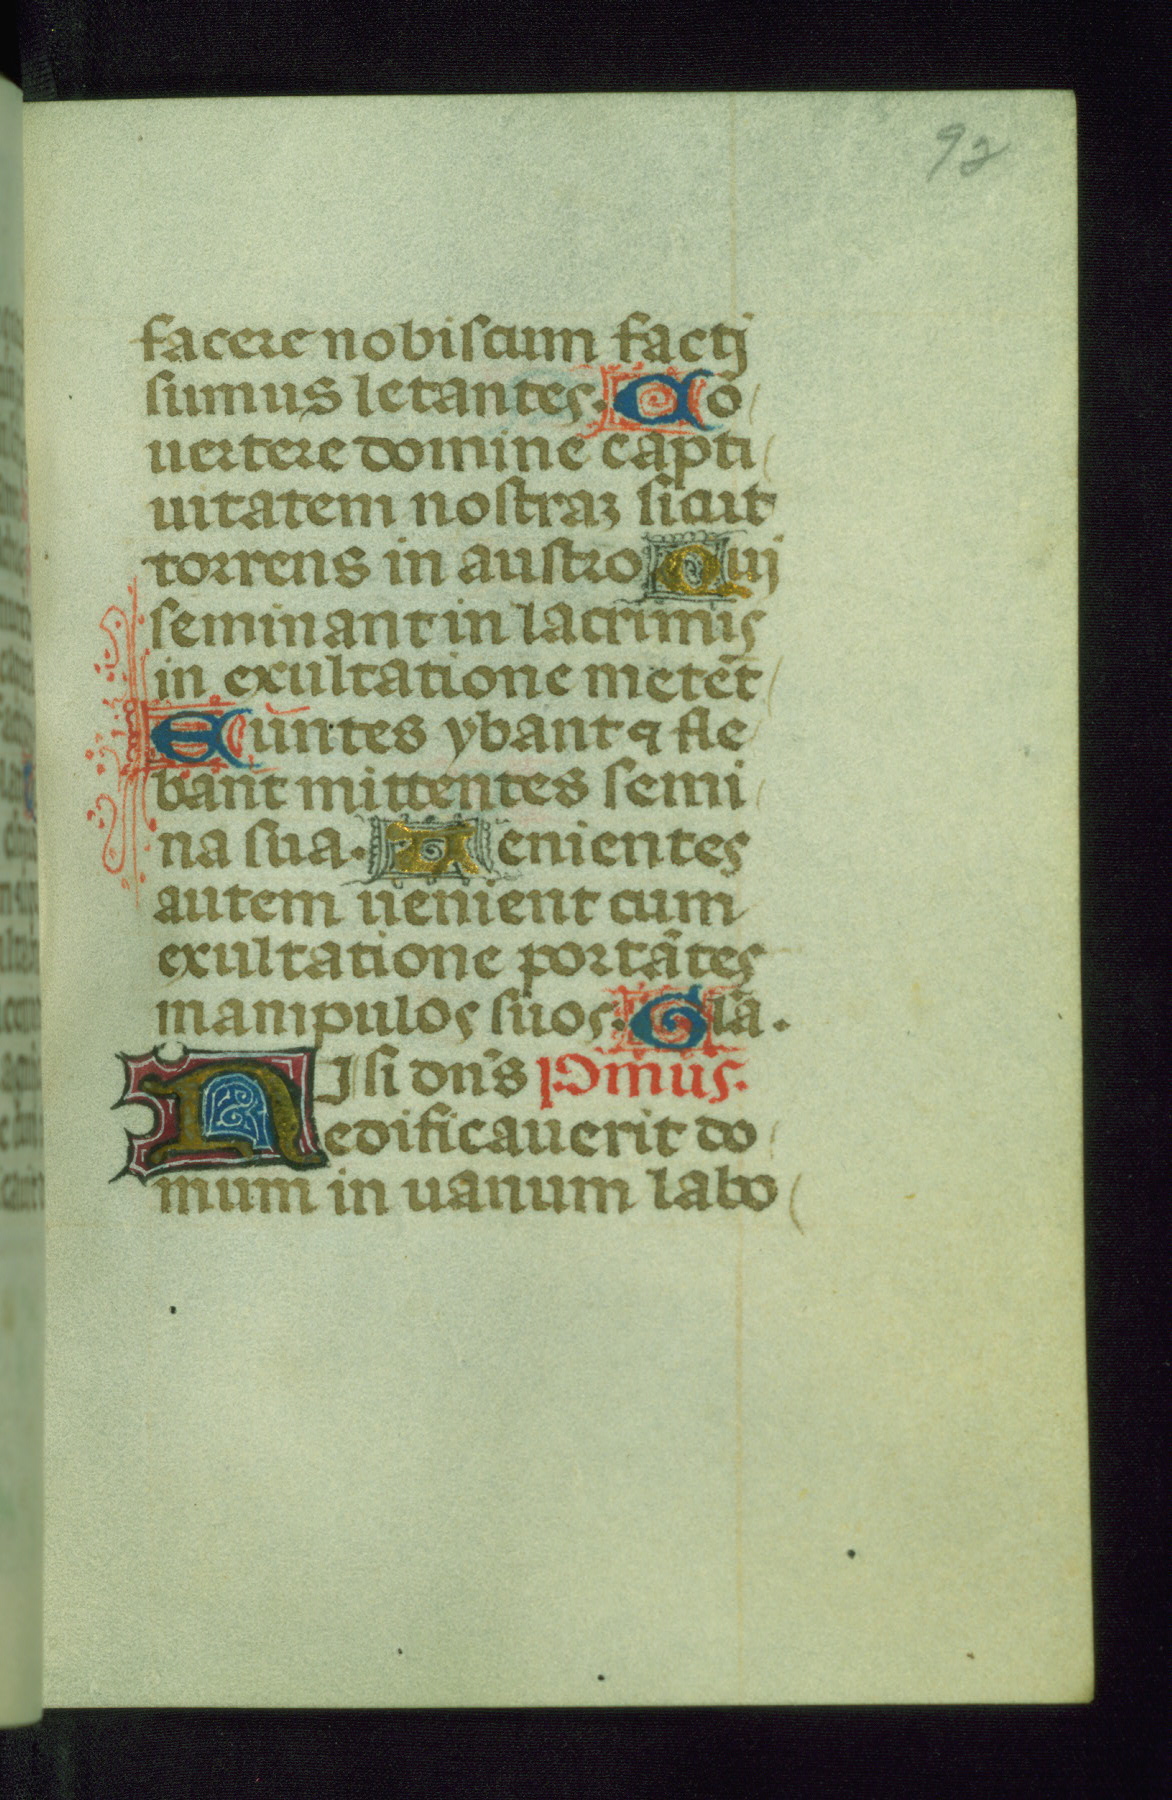 92
facere nobiscum factj
sumus letantes. Co
uertere domine capti
uitatem nostraꝫ sicut
torrens in austro Quj
seminant in lacrimis
in exultatione metēt
Eūntes ybant ⁊ fle
bant mittentes semi
na sua. Uenientes
autem uenient cum
exultatione portātes
manipulos suos. Gla.
NJsi dn̄s p̄mus.
edificauerit do
mum in uanum labo